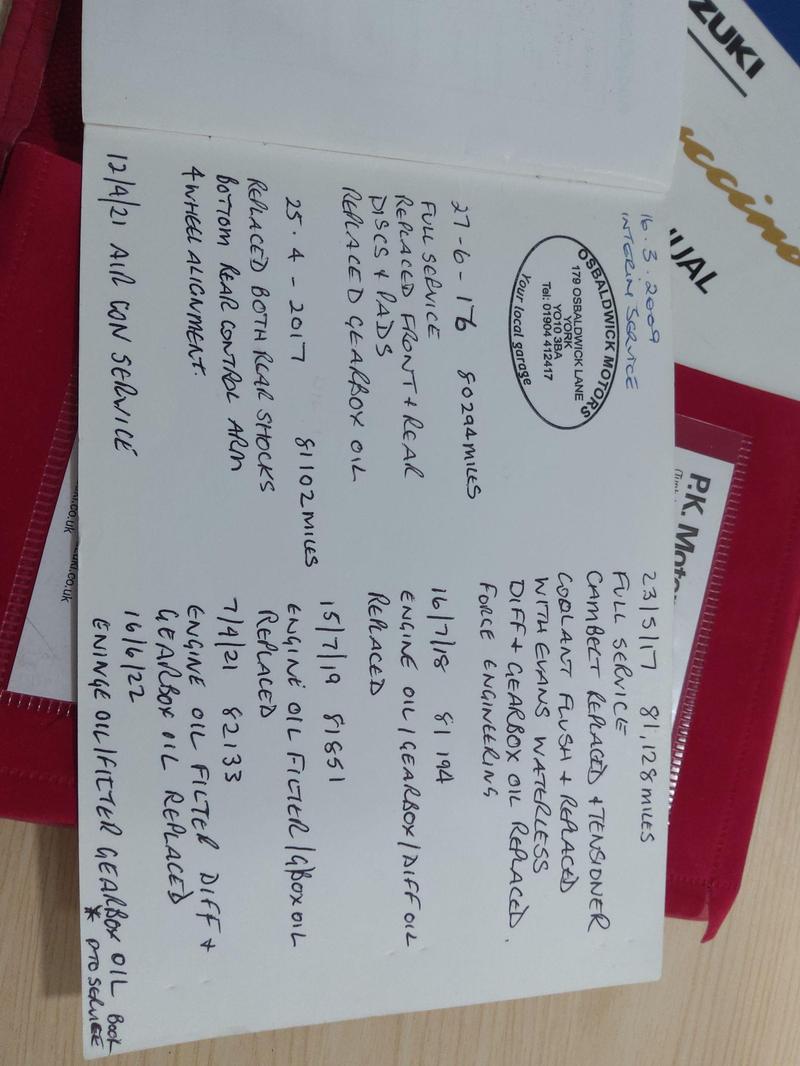 16.3.2009
INTERIM SERVICE
OSBALDWICK MOTORS
179 OSBALDWICK LANE
YORK
YO10 3BA
Tel: 01904 412417
Your local garage
27-6-16 80294 MILES
FULL SERVICE
REPLACED FRONT + REAR
DISCS + PADS
REPLACED GEARBOX OIL
25.4-2017 81102 MILES
REPLACED BOTH REAR SHOCKS
BOTTOM REAR CONTROL ARM
4 WHEEL ALIGNMENT.
12/4/21 AIR CON SERVICE
23/5/17 81,128 MILES
FULL SERVICE
CAMBELT REPLACED + TENSIONER
COOLANT FLUSH + REPLACED
WITH EVANS WATERLESS
DIFF + GEARBOX OIL REPLACED.
FORCE ENGINEERING
16/7/18 81194
ENGINE OIL/GEARBOX/DIFF OIL
REPLACED
15/7/19 81851
ENGINE OIL FILTER/GBOX OIL
REPLACED
7/4/21 82133
ENGINE OIL FILTER DIFF +
GEARBOX OIL REPLACED
16/6/22
ENINGE OIL/FILTER GEARBOX OIL
* PTO SERVICE BOOK
ZUKI
ccino
UAL
P.K. Moto
.co.uk
UKI.co.uk